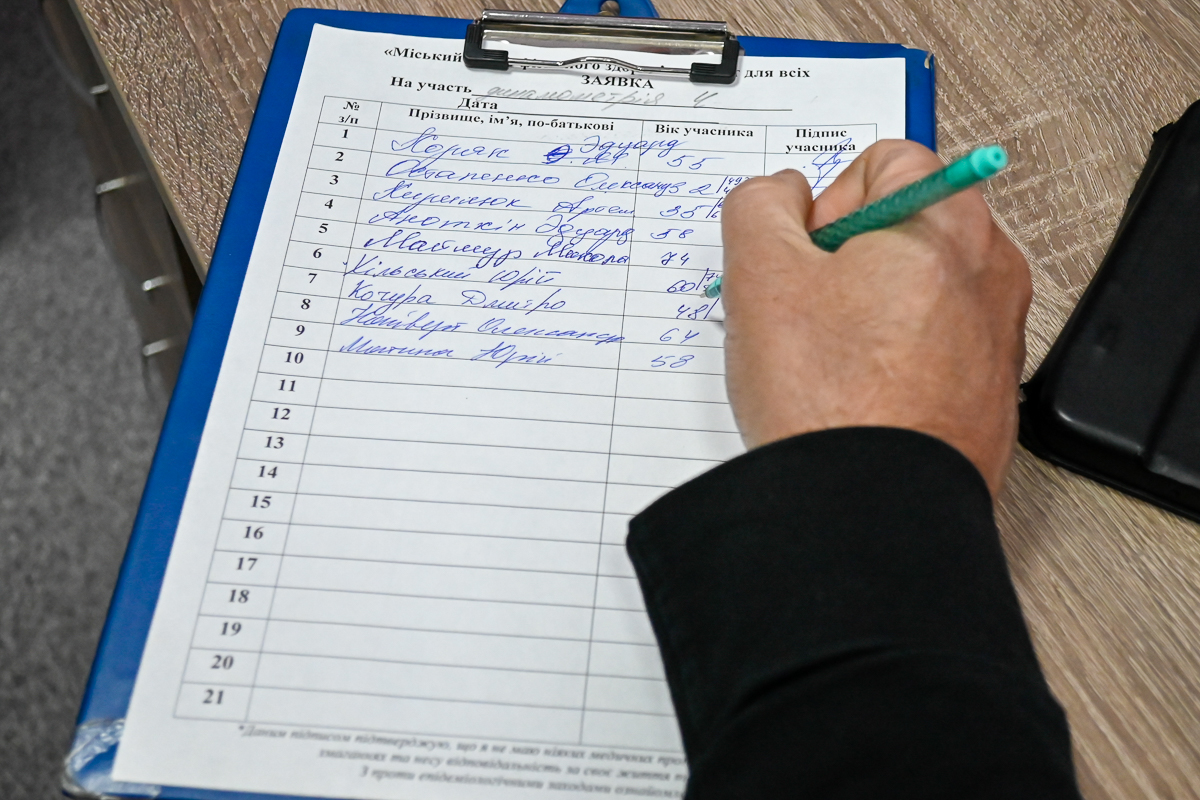 «Міський для всіх
ЗАЯВКА
На участь динамометрія Ч
Дата
№ з/п Прізвище, ім’я, по-батькові Вік учасника Підпис учасника
1 Хоряк Эдуард 55
2 Остапенко Олександр
3 Артем 35
4 Эдуард 58
5 Маймур Микола 74
6 Кільський Юрій 60
7 Кочура Дмитро 48
8 Олександр 64
9 Юрій 58
10
11
12
13
14
15
16
17
18
19
20
21
*Даним підписом підтверджую, що я не маю ніяких медичних
змаганнях та несу відповідальність за своє життя
З проти епідеміологічними заходами